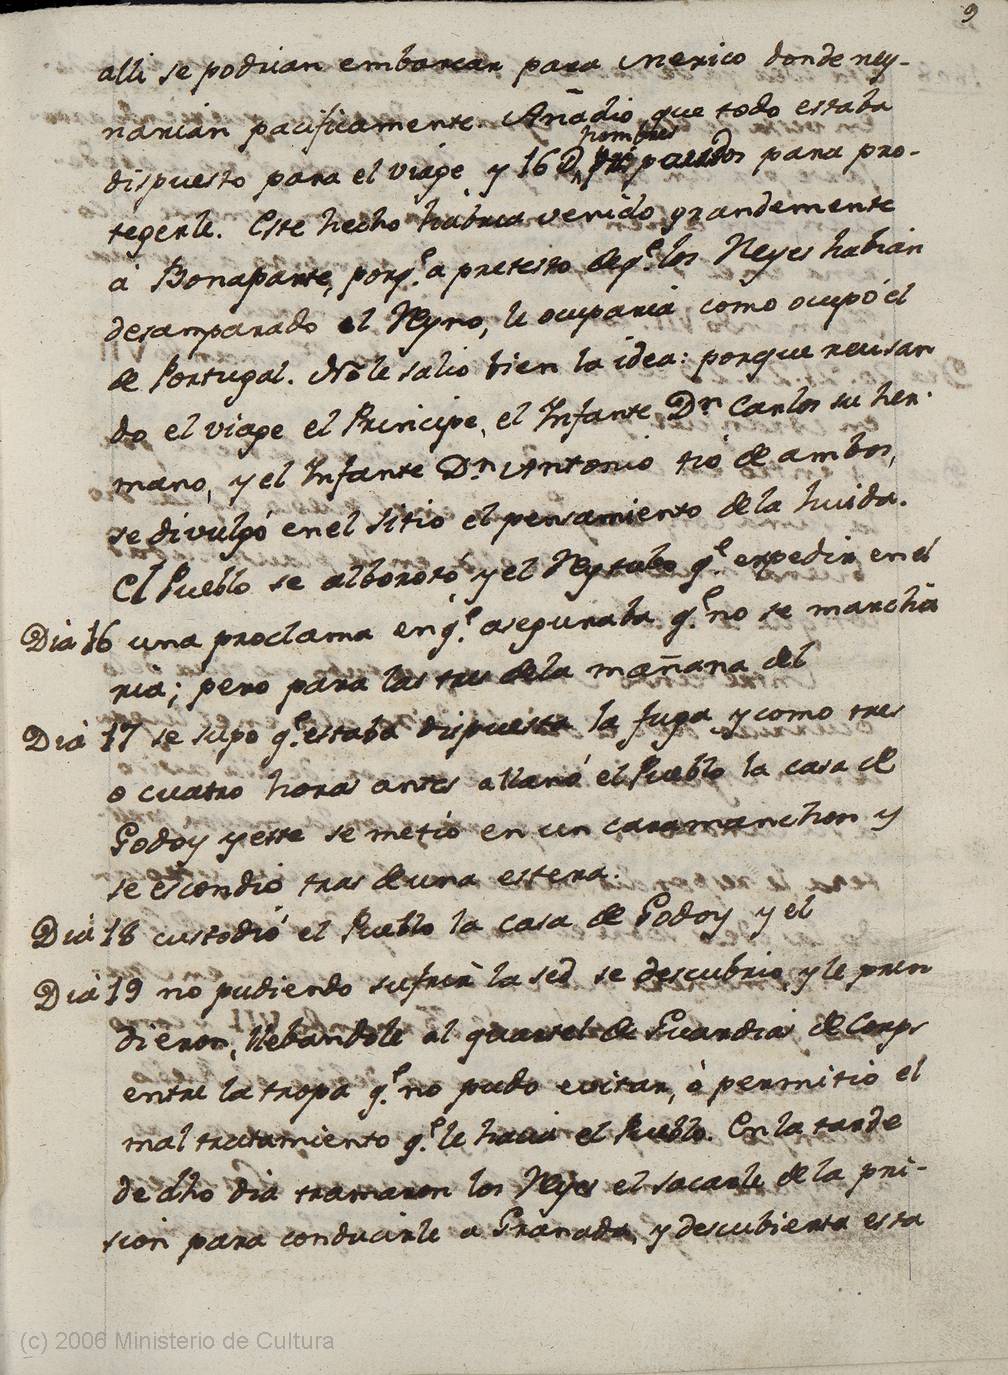 9
alli se podrian embarcar para Mexico donde rey-
narian pacificamente. Añadio que todo estaba
hombres
dispuesto para el viage y 16 D, preparados para pro-
tegerle. Este hecho habria venido grandemente
à Bonaparte, porq.e a pretesto de q.e los Reyes habian
desamparado el Reyno, le ocuparia como ocupó el
de Portugal. No le salio bien la idea: porque reusan
do el viage el Principe, el Infante Dn Carlos su her-
mano, y el Infante Dn Antonio tio de ambos,
se divulgó en el sitio el pensamiento de la huida.
El Pueblo se alborotó y el Rey tubo q.e expedir en el
Dia 16 una proclama en q.e aseguraba q.e no se marcha
ria; pero para las tres de la mañana del
Dia 17 se supo q.e estaba dispuesta la fuga y como tres
o cuatro horas antes allanó el Pueblo la casa de
Godoy y este se metió en un caramanchon y
se escondio tras de una estera.
Dia 18 custodió el Pueblo la casa de Godoy y el
Dia 19 no pudiendo sufrir la sed se descubrio y le pren
dieron, llebandole al quartel de Guardias de Corps
entre la tropa q.e no pudo evitar, ò permitió el
mal tratamiento q.e le hacia el Pueblo. En la tarde
de dho dia tramaron los Reyes el sacarle de la pri-
sion para conducirle a Granada, y descubierta esta
(c) 2006 Ministerio de Cultura